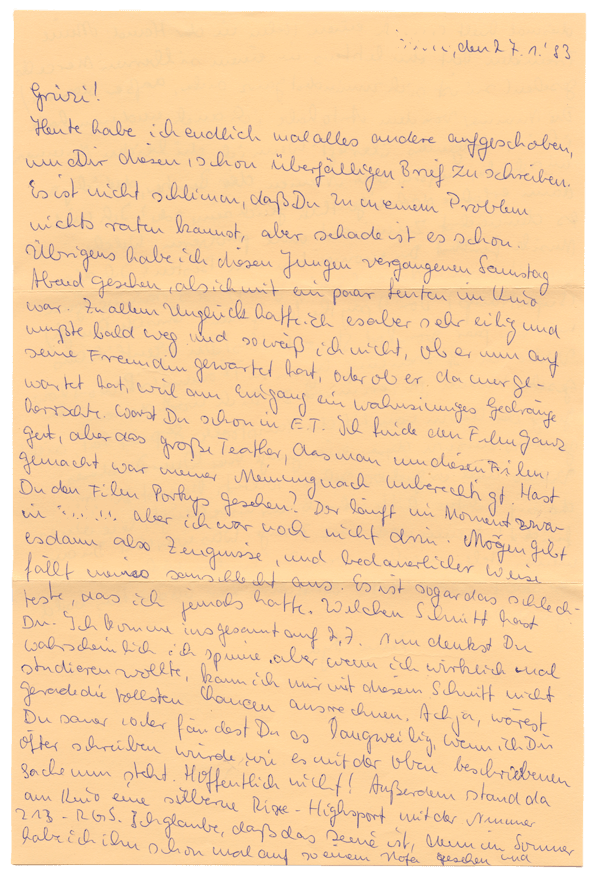 , den 27.1.'83
Grüzi!
Heute habe ich endlich mal alles andere aufgeschoben,
um Dir diesen, schon überfälligen Brief zu schreiben.
Es ist nicht schlimm, daß Du zu meinem Problem
nichts raten kannst, aber schade ist es schon.
Übrigens habe ich diesen Jungen vergangenen Samstag
Abend gesehen, als ich mit ein paar Leuten im Kino
war. Zu allem Unglück hatte ich es aber sehr eilig und
mußte bald weg und so weiß ich nicht, ob er nun auf
seine Freundin gewartet hat, oder ob er da nur ge-
wartet hat, weil am Eingang ein wahnsinniges Gedränge
herrschte. Warst Du schon in E.T. Ich finde den Film ganz
gut, aber das große Teather, das man um diesen Film
gemacht war meiner Meinung nach unberechtigt. Hast
Du den Film Porkys gesehen? Der läuft im Moment zwar
in aber ich war noch nicht drin. Morgen gibt
es dann also Zeugnisse, und bedauerlicher Weise
fällt meines sauschlecht aus. Es ist sogar das schlech-
teste, das ich jemals hatte. Welchen Schnitt hast
Du. Ich komme insgesamt auf 2,7. Nun denkst Du
wahrscheinlich ich spinne, aber wenn ich wirklich mal
studieren wollte, kann ich mir mit diesem Schnitt nicht
gerade die tollsten Chancen ausrechnen. Ach ja, wärest
Du sauer, oder fändest Du es langweilig, wenn ich Dir
öfter schreiben würde, wie es mit der oben beschriebenen
Sache nun steht. Hoffentlich nicht! Außerdem stand da
am Kino eine silberne Rixe-Highsport mit der Nummer
213-RGS. Ich glaube, daß das seine ist, denn im Sommer
habe ich ihn schon mal auf so einem Mofa gesehen und